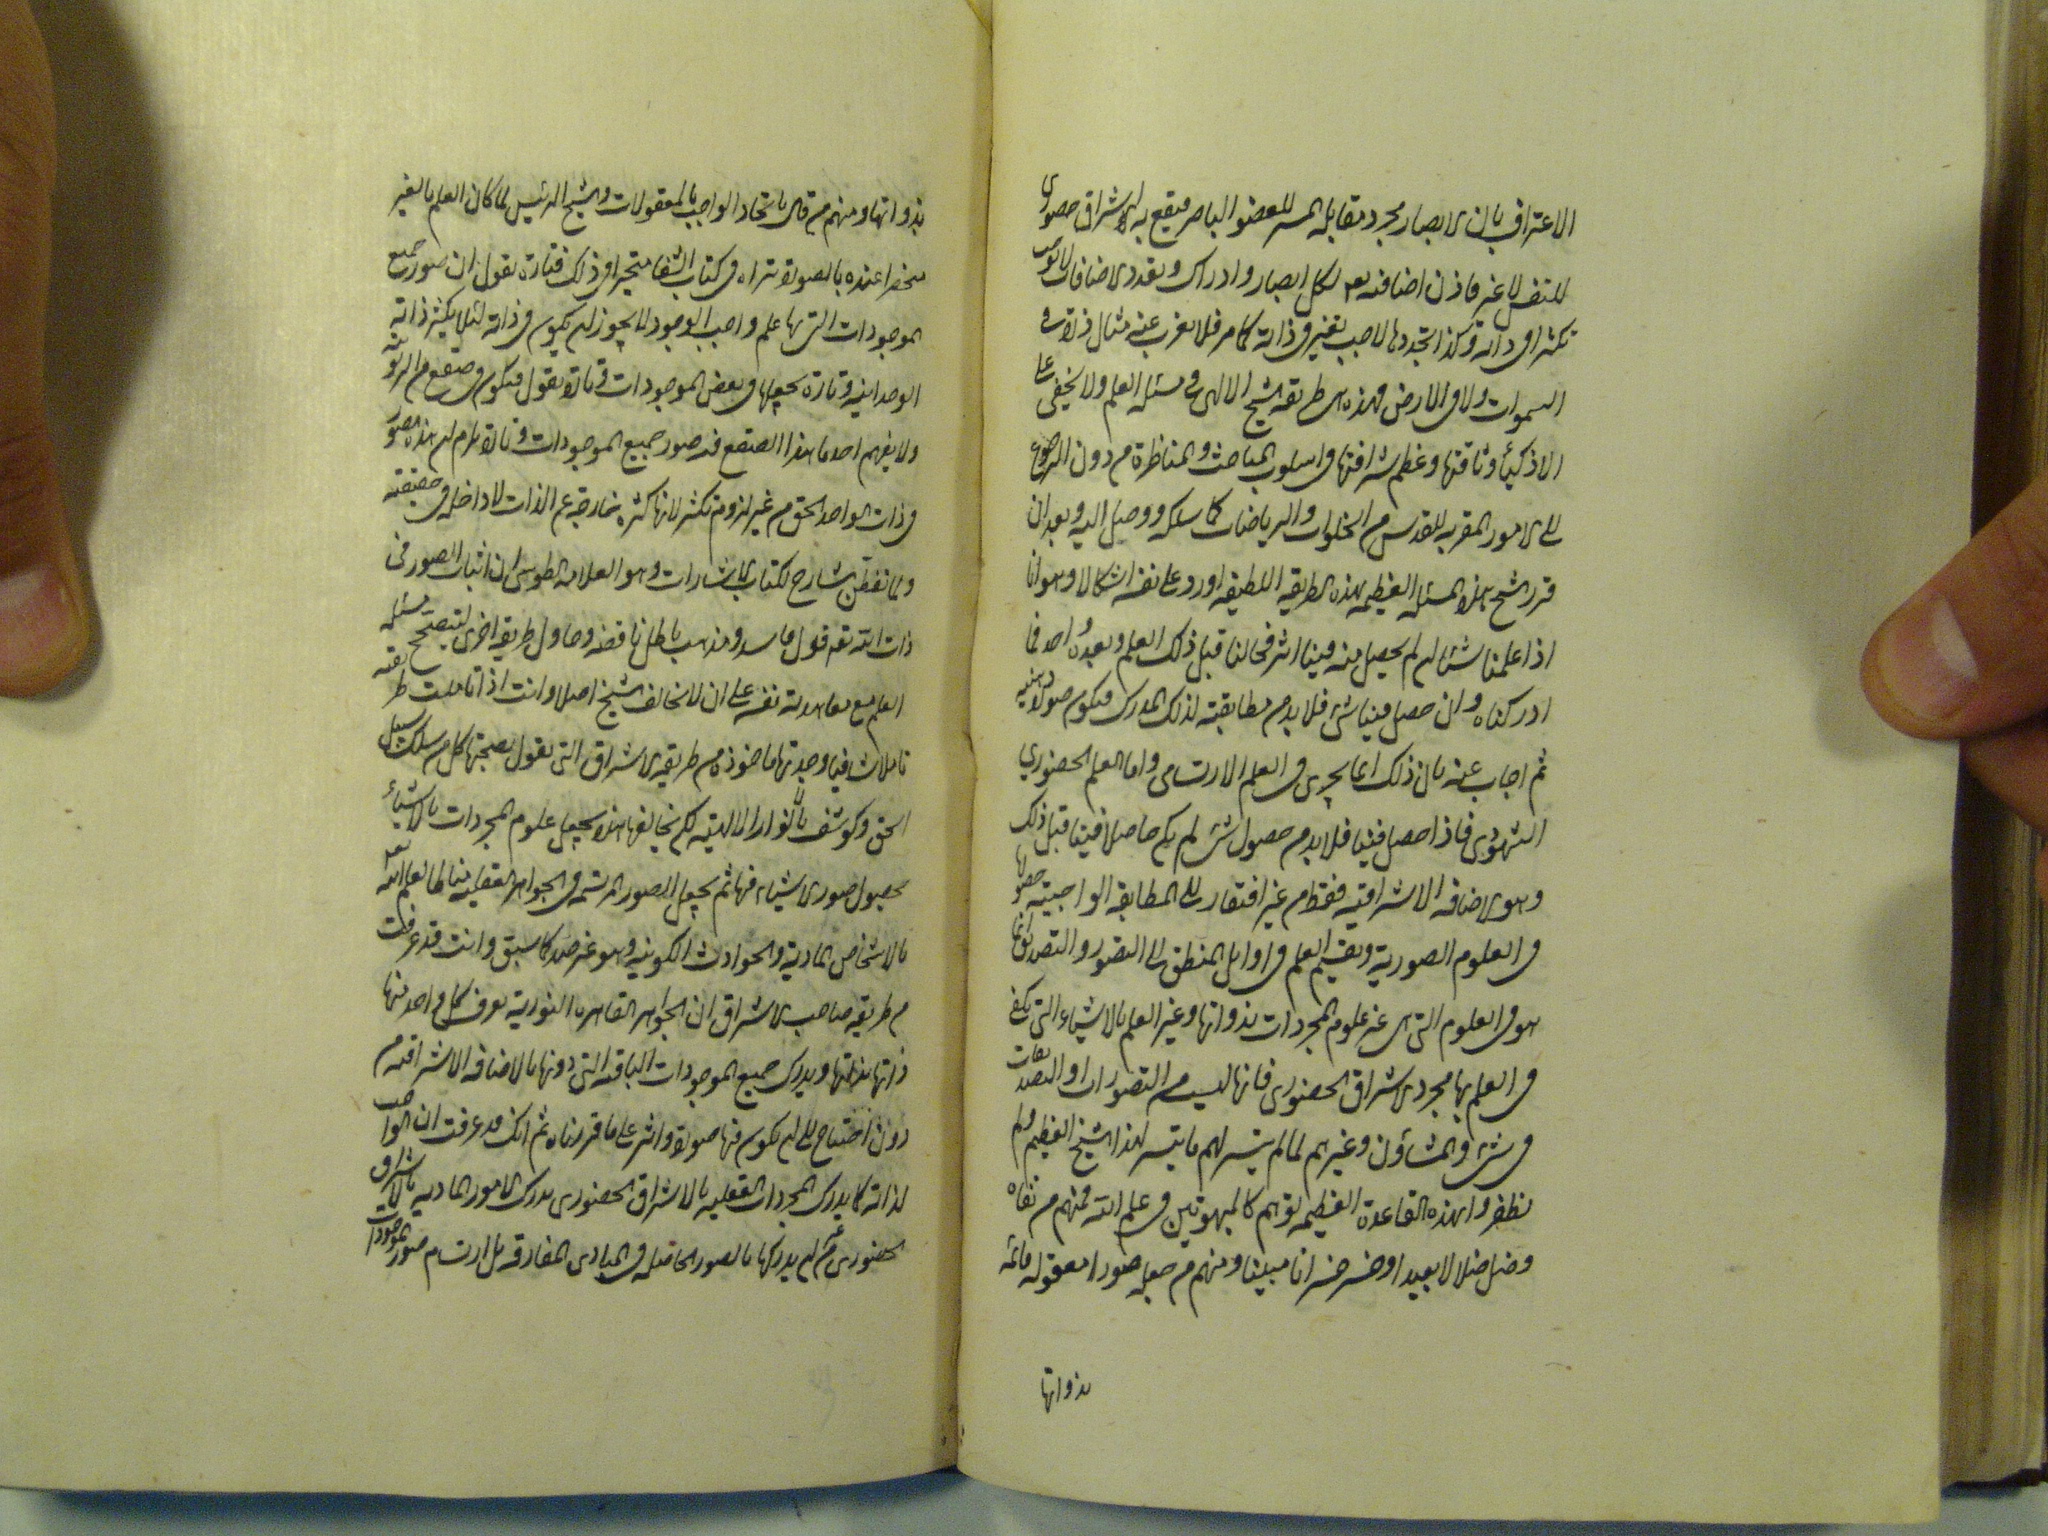 الاعتراف بان الابصار مجرد مقابلة المستنير للعضو الباصر فيقع به الاشراق حضوري
للنفس لا غير فاذن اضافته تعم لكل ابصار وادراك وتعدد الاضافات لا توجب
تكثرا في ذاته وكذا تجددها لا يوجب تغير في ذاته كما مر فلا يعزب عنه مثال ذرة في
السموات ولا في الارض فهذه هي طريقة الشيخ الالهي في مسئلة العلم ولا يخفى على
الاذكياء وثاقتها وعظم شرافتها في اسلوب المباحث والمناظرة من دون الرجوع
الى الامور المقربه للقدس من الخلوات والرياضات كما سلك ووصل اليه وبعد ان
قرر الشيخ هذه المسئلة العظيمه بهذه الطريقه اللطيفه اورد على نفسه اشكالا وهو انا
اذا علمنا شئا ان لم يحصل منه فينا اثر فحالنا قبل ذلك العلم وبعده واحد فما
ادركناه وان حصل فينا شئ فلا بد من مطابقته لذلك المدرك فيكون صورة ذهنيه
ثم اجاب عنه بان ذلك انما يجرى في العلم الارتسامى واما العلم الحضوري
الشهودى فاذا حصل فينا فلا بد من حصول شئ لم يكن حاصلا فينا قبل ذلك
وهو الاضافه الاشراقية فقط من غير افتقار الى المطابقه الواجبة حصولها
في العلوم الصورية وتقسيم العلم في اوايل المنطق الى التصور والتصديق انما
هو في العلوم التى هى غير علوم المجردات بذواتها وغير العلم بالاشياء التى يكفى
في العلم بها مجرد الاشراق الحضورى فانها ليست من التصورات او التصديقات
في شئ والمشاؤن وغيرهم لما لم يتيسر لهم ما يتيسر لهذا الشيخ العظيم ولم
يظفروا بهذه القاعدة العظيمه تريهم كالمبهوتين في علم الله فمنهم من نفاه
وضل ضلالا بعيدا وخسر خسرانا مبينا ومنهم من جعله صورا معقوله قائمة
بذواتها
بذواتها ومنهم من قال باتحاد الواجب بالمعقولات والشيخ الرئيس لما كان العلم بالغير
منحصرا عنده بالصورة تراه في كتاب الشفا متحيرا في ذلك فتارة يقول ان صور جميع
الموجودات التى بها علم واجب الوجود لا يجوز ان يكون في ذاته لئلا يتكثر ذاته
الوحدانيه وتارة يجعلها في بعض الموجودات وتارة يقول فيكون في صقع من الربوبية
ولا يفهم احد ما هذا الصقع فيه صور جميع الموجودات وتارة يلزم ان هذه الصور
في ذات الواحد الحق من غير لزوم تكثر لانها كثرة خارجة عن الذات لا داخله في حقيقته
ولما تفطن شارح لكتاب الاشارات وهو العلامه الطوسى ان اثبات الصور في
ذات الله تعه قول فاسد ومذهب باطل ناقضه وحاول طريقة اخرى لتصحيح مسئلة
العلم مع معاهدته نفسه على ان لا يخالف الشيخ اصلا وانت اذا تاملت طريقته
تاملا شافيا وجدتها ماخوذة من طريقة الاشراق التى يقول بصحتها كل من سلك سبيل
الحق وكوشف بالانوار الالهيه لكن يخالفها بانه يجعل علوم المجردات بالاشياء
بحصول صور الاشياء فيها ثم يجعل الصور المرتسمة في الجواهر العقلية مناطا لعلم الله تعه
بالاشخاص المادية والحوادث الكونيه وهو غير صدر كما سبق وانت قد عرفت
من طريقة صاحب الاشراق ان الجواهر القاهرة النورية يعرف كل واحد منها
ذاتها بذاتها ويدرك جميع الموجودات الباقيه التى دونها بالاضافه الاشراقيه من
دون احتياج الى ان يكون فيها صورة واثر على ما قررناه ثم انك قد عرفت ان الواجب
لذاته كما يدرك المجردات العقليه بالاشراق الحضورى يدرك الامور الماديه بالاشراق
الحضورى من غير ان يدركها بالصور الحاصله في المبادى المفارقه بل ارتسام صور الموجودات